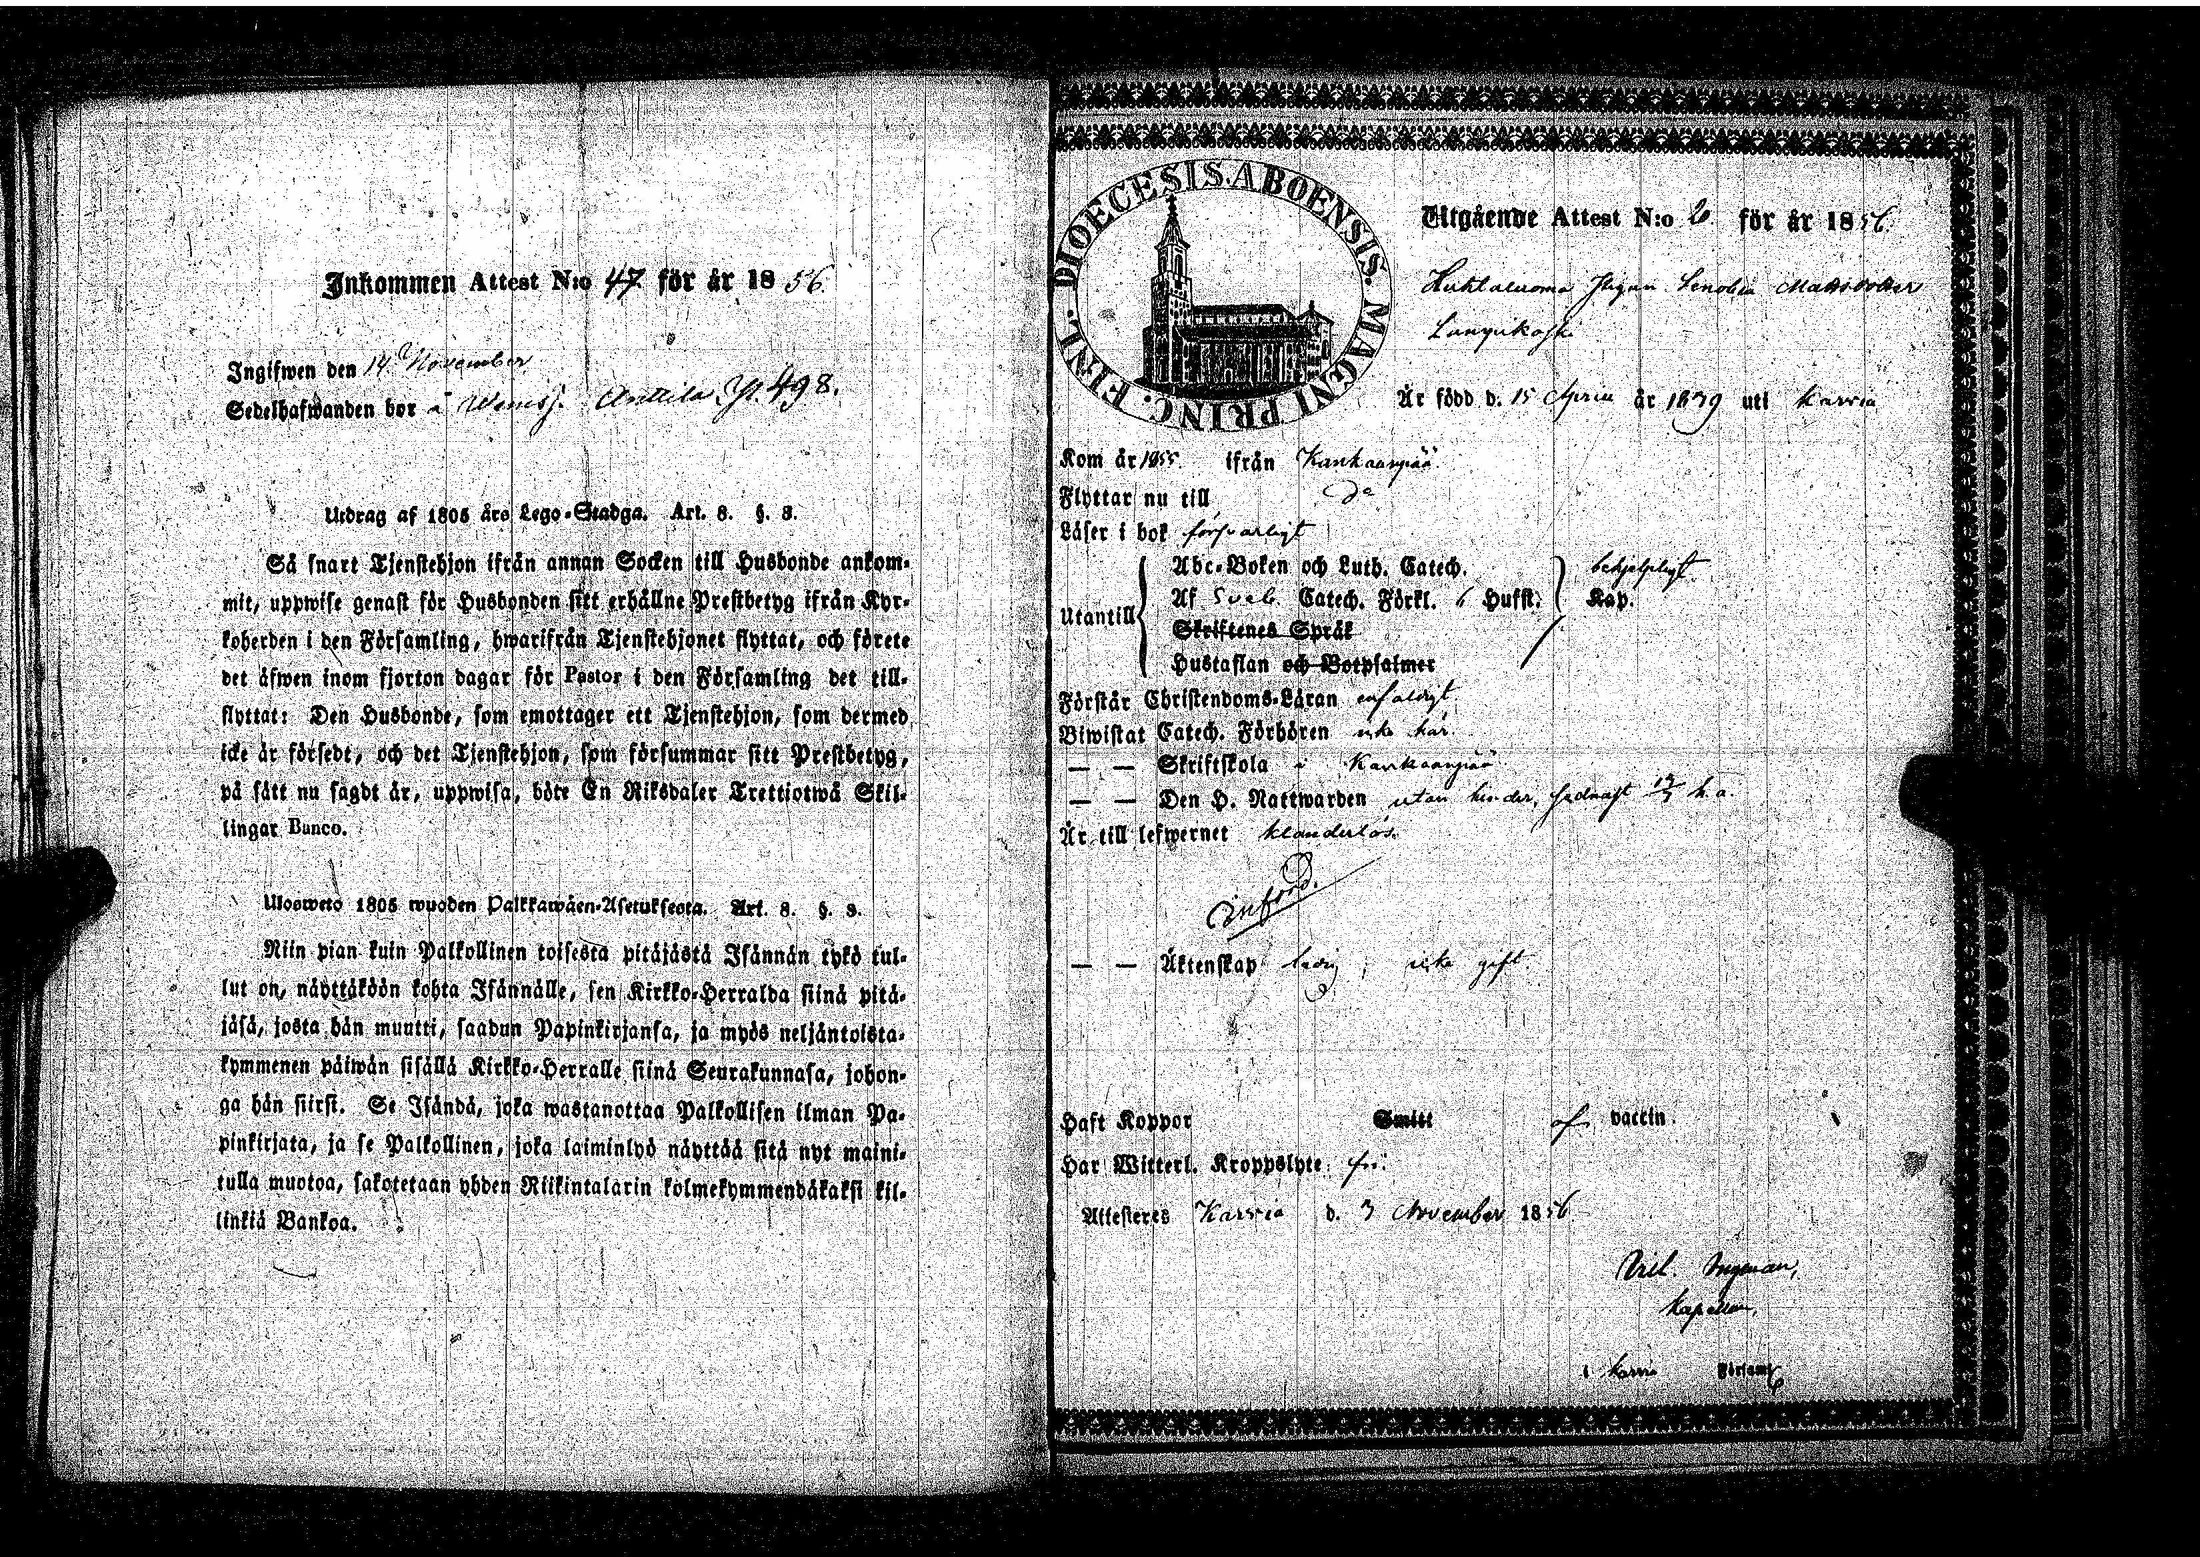 Inkommen Attest N:o 47 för år 1856.
Ingifwen den 14 November
Sedelhafwanden bor å Anttila 498.
Utdrag af 1805 års Lego-Stadga. Art. 8. §. 8.
Så snart Tjenstehjon ifrån annan Socken till Husbonde ankom-
mit, uppwise genast för Husbonden sitt erhållne Prestbetyg ifrån Kyr-
koherden i den Församling, hwarifrån Tjenstehjonet flyttat, och förete
det äfwen inom fjorton dagar för Pastor i den Församling det till-
flyttat: Den Husbonde, som emottager ett Tjenstehjon, som dermed
icke är försedt, och det Tjenstehjon, som försummar sitt Prestbetyg,
på sätt nu sagdt är, uppwisa, böte En Riksdaler Trettiotwå Skil-
lingar Banco.
Ulosweto 1805 wuoden Palkkawäen-Asetuksesta. Art. 8. §. 8.
Niin pian kuin Palkollinen toisesta pitäjästä Isännän tykö tul-
lut on, näyttäköön kohta Isännälle, sen Kirkko-Herralda siinä pitä-
jäsä, josta hän muutti, saadun Papinkirjansa, ja myös neljäntoista-
kymmenen päiwän sisällä Kirkko-Herralle siinä Seurakunnasa, johon-
ga hän siirsi. Se Isändä, joka wastanottaa Palkollisen ilman Pa-
pinkirjata, ja se Palkollinen, joka laiminlyö näyttää sitä nyt maini-
tulla muotoa, sakotetaan yhden Riikintalarin kolmekymmendäkaksi kil-
linkiä Bankoa.
DIOECESIS. ABOENSIS. MAGNI PRINC. FINL.
Utgående Attest N:o för år 1856.
Mattsdotter
Är född d. 15 April år 1839 uti Karvia
Kom år 1855. ifrån Kankaanpää
Flyttar nu till Do
Läser i bok försvarligt
Utantill
Abc-Boken och Luth. Catech. behjelpligt
Af Sveb. Catech. Förkl. 6 Hufst. Kap.
Skriftenes Språk
Hustaflan och Botpsalmer
Förstår Christendoms-Läran enfaldigt
Biwistat Catech. Förhören icke här.
— — Skriftskola i Kankaanpää
— — Den H. Nattwarden utan hinder, sednast h. a.
Är till lefwernet klanderlös.
— — Äktenskap ledig, icke gift.
Haft Koppor Smitt af vaccin.
Har Witterl. Kroppslyte fri.
Attesteres Karvia d. 3 November 1856
Vilh. Ingman,
Kapellan,
i Karvia Församl.